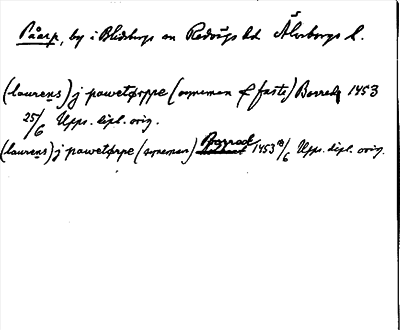 Påarp, by i Blidsbergs sn Redvägs hd Älvsborgs l.
(laurens) j pawetørppe (synemen & faste) Borred 1453
25/6 Upps. dipl. orig.
(laurens) j pawetørpe (synemen) Borred 1453 /6 Upps. dipl. orig.